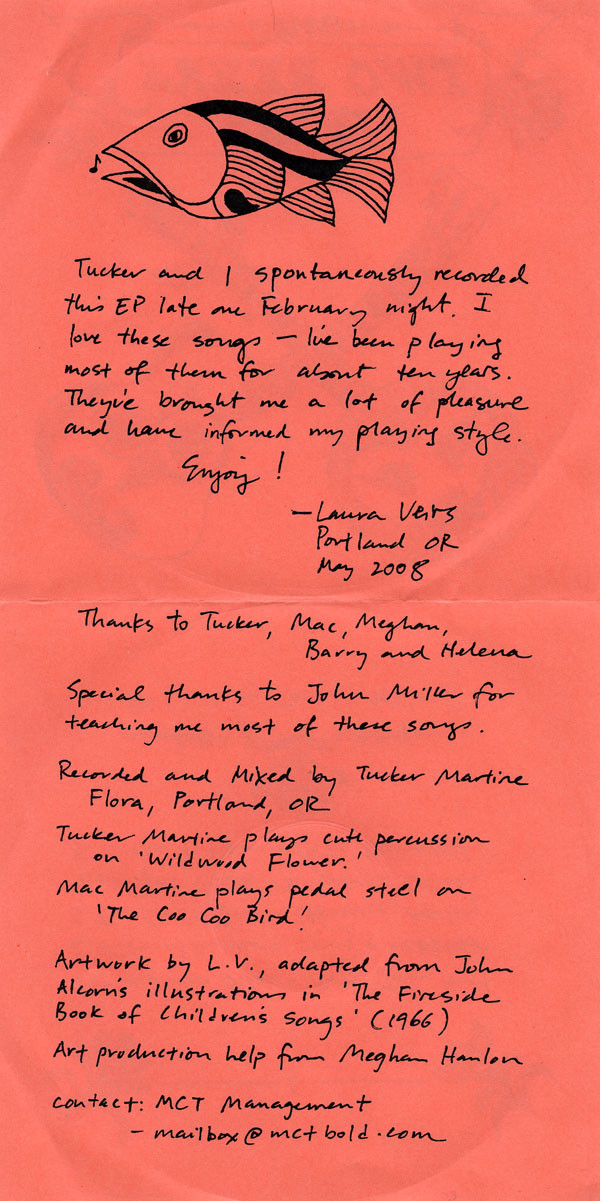 Tucker and I spontaneously recorded
this EP late one February night. I
love these songs — I've been playing
most of them for about ten years.
They've brought me a lot of pleasure
and have informed my playing style.
Enjoy!
— Laura Veirs
Portland OR
May 2008
Thanks to Tucker, Mac, Meghan,
Barry and Helena
Special thanks to John Miller for
teaching me most of these songs.
Recorded and Mixed by Tucker Martine
Flora, Portland, OR
Tucker Martine plays cute percussion
on 'Wildwood Flower.'
Mac Martine plays pedal steel on
'The Coo Coo Bird.'
Artwork by L.V., adapted from John
Alcorn's illustrations in 'The Fireside
Book of Children's Songs' (1966)
Art production help from Meghan Hanlon
contact: MCT Management
- mailbox@mctbold.com